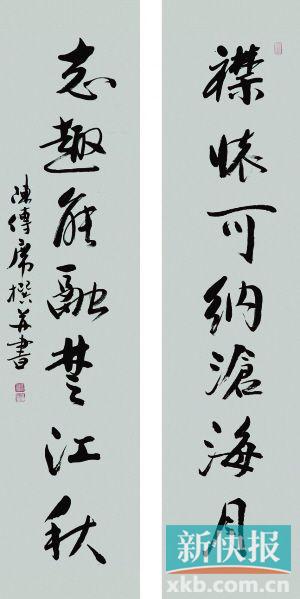 襟懷可納滄海月
志趣能融楚江秋
陳傳席撰并書
新快报
xkb.com.cn